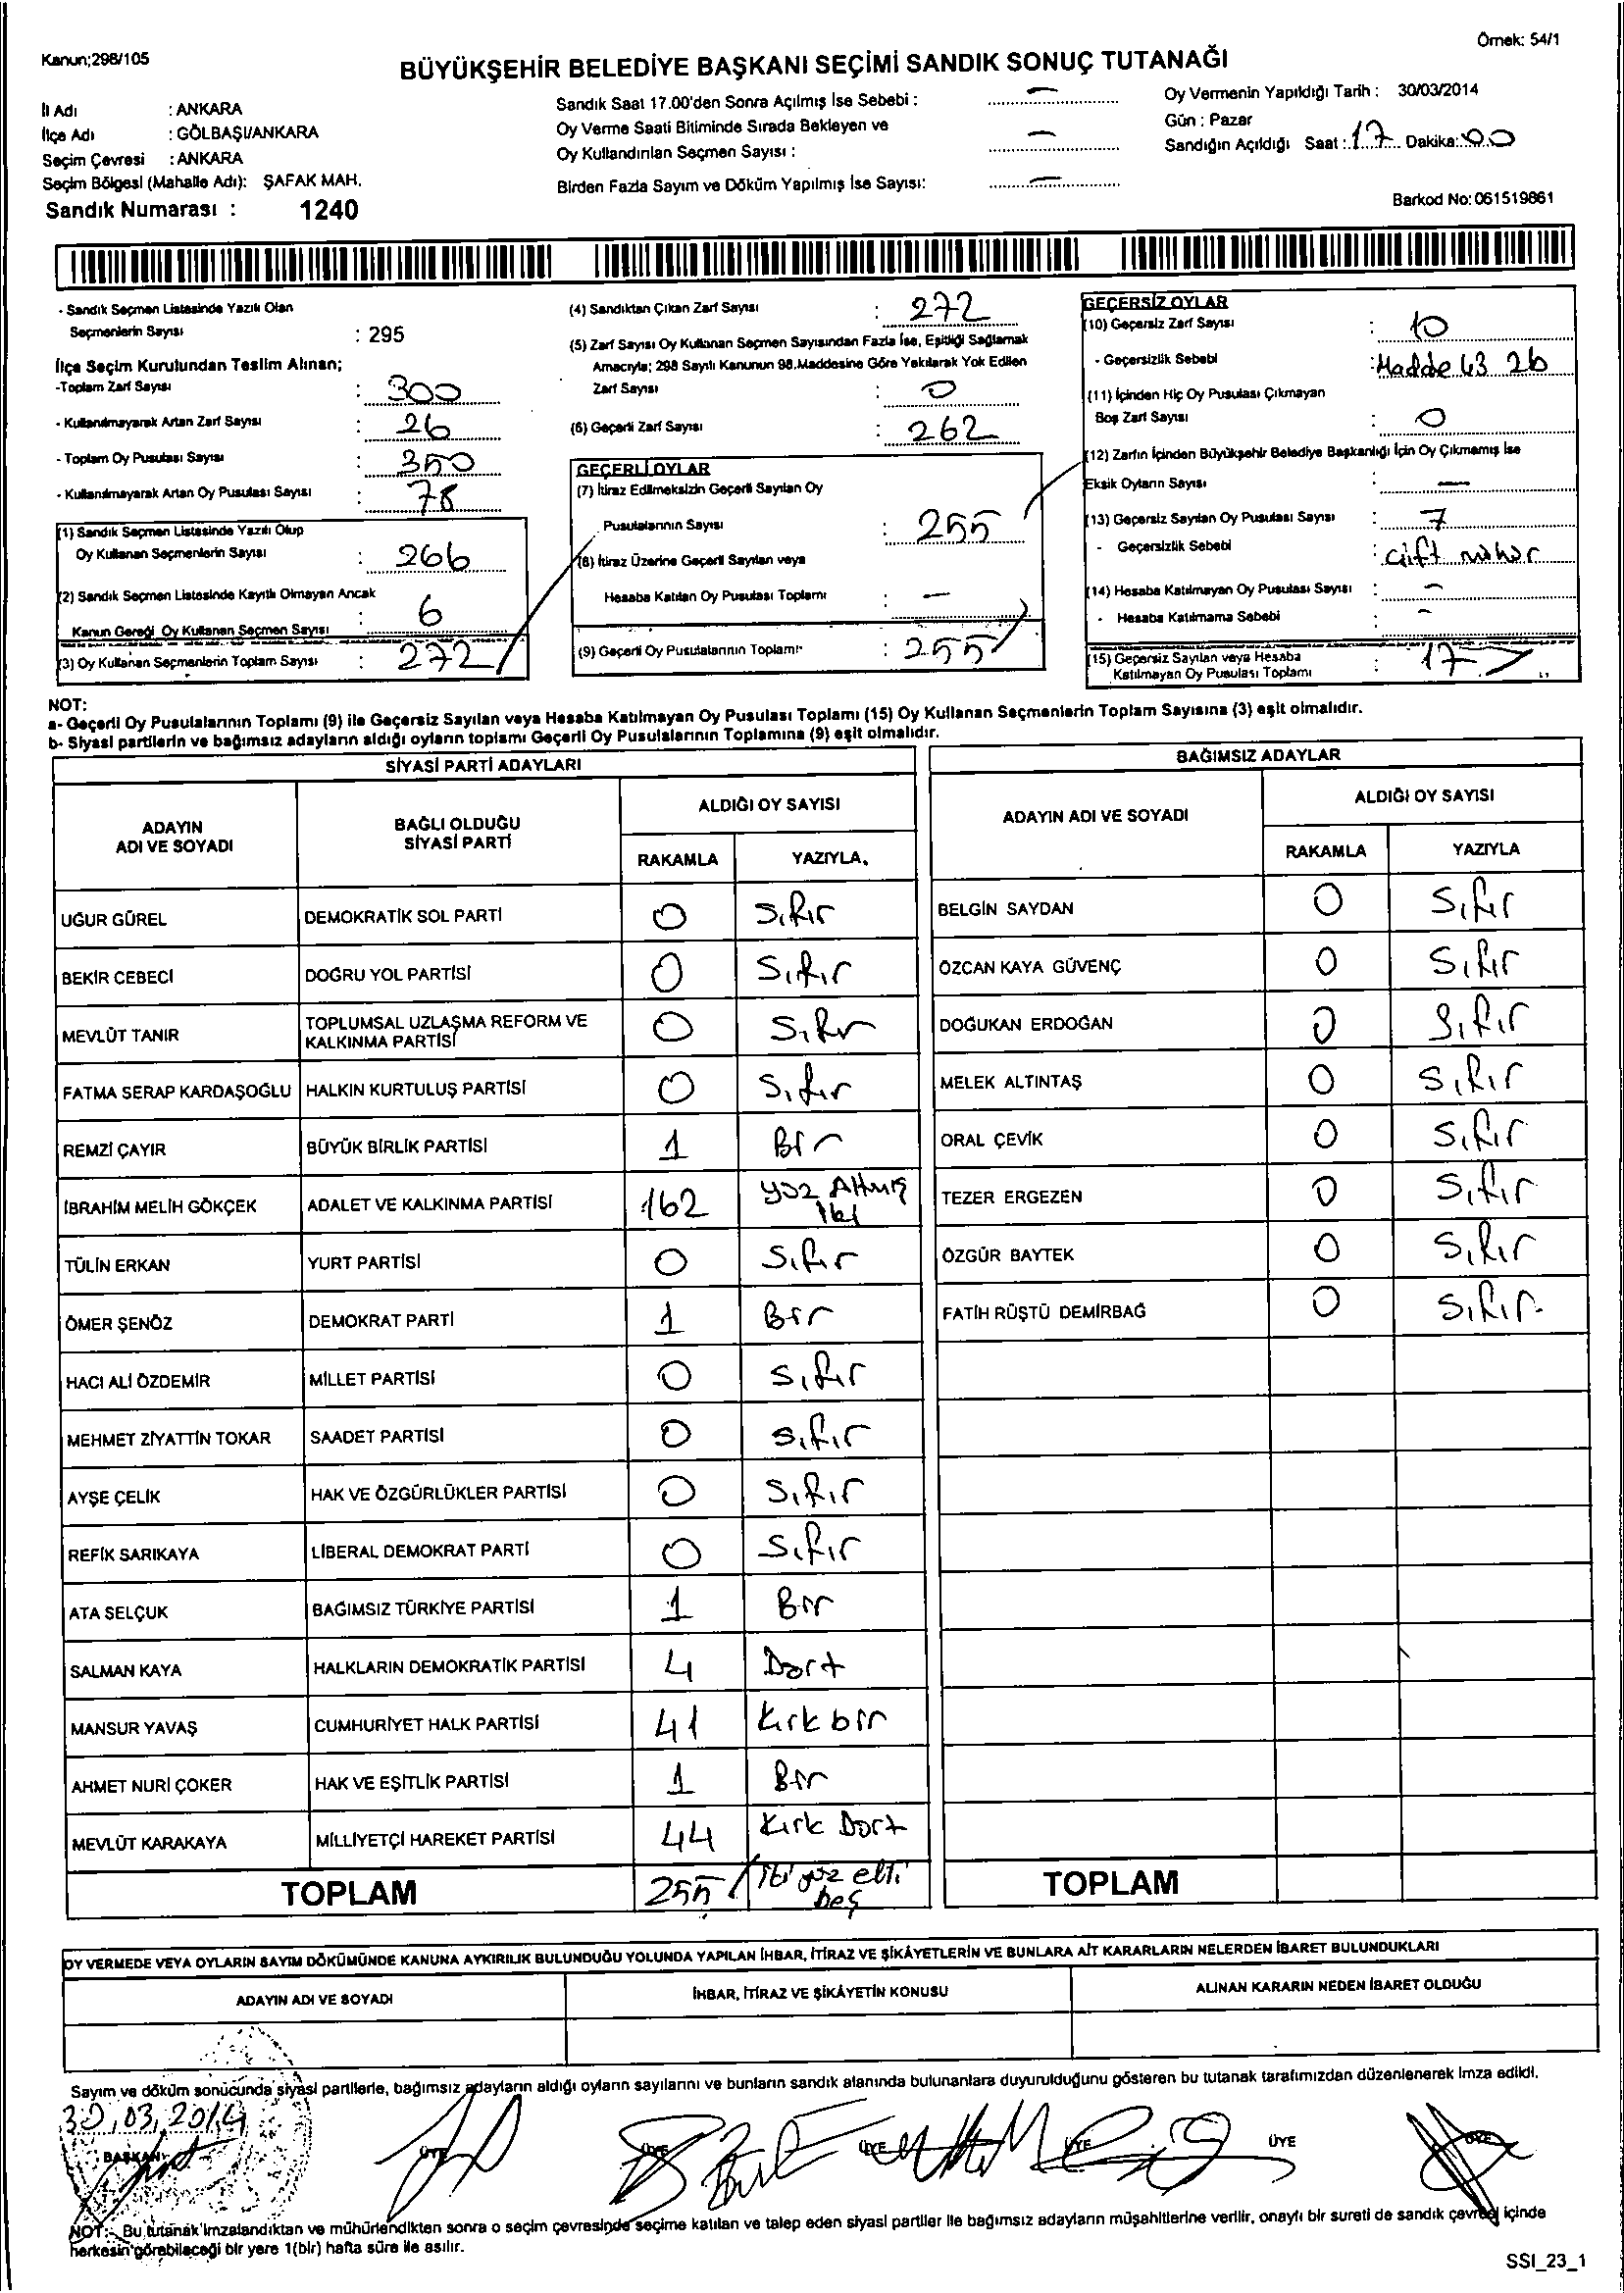 Kanun;298/105
Örnek: 54/1
BÜYÜKŞEHİR BELEDİYE BAŞKANI SEÇİMİ SANDIK SONUÇ TUTANAĞI
İl Adı : ANKARA
İlçe Adı : GÖLBAŞI/ANKARA
Seçim Çevresi : ANKARA
Seçim Bölgesi (Mahalle Adı): ŞAFAK MAH.
Sandık Numarası : 1240
Sandık Saat 17.00'den Sonra Açılmış İse Sebebi : —
Oy Verme Saati Bitiminde Sırada Bekleyen ve
Oy Kullandırılan Seçmen Sayısı : —
Birden Fazla Sayım ve Döküm Yapılmış İse Sayısı: —
Oy Vermenin Yapıldığı Tarih : 30/03/2014
Gün : Pazar
Sandığın Açıldığı Saat : 17 Dakika: 00
Barkod No: 061519861
- Sandık Seçmen Listesinde Yazılı Olan
Seçmenlerin Sayısı : 295
İlçe Seçim Kurulundan Teslim Alınan;
-Toplam Zarf Sayısı : 300
- Kullanılmayarak Artan Zarf Sayısı : 26
- Toplam Oy Pusulası Sayısı : 350
- Kullanılmayarak Artan Oy Pusulası Sayısı : 78
(1) Sandık Seçmen Listesinde Yazılı Olup
Oy Kullanan Seçmenlerin Sayısı : 266
(2) Sandık Seçmen Listesinde Kayıtlı Olmayan Ancak
Kanun Gereği Oy Kullanan Seçmen Sayısı : 6
(3) Oy Kullanan Seçmenlerin Toplam Sayısı : 272
(4) Sandıktan Çıkan Zarf Sayısı : 272
(5) Zarf Sayısı Oy Kullanan Seçmen Sayısından Fazla İse, Eşitliği Sağlamak
Amacıyla; 298 Sayılı Kanunun 98.Maddesine Göre Yakılarak Yok Edilen
Zarf Sayısı : 0
(6) Geçerli Zarf Sayısı : 262
GEÇERLİ OYLAR
(7) İtiraz Edilmeksizin Geçerli Sayılan Oy
Pusulalarının Sayısı : 255
(8) İtiraz Üzerine Geçerli Sayılan veya
Hesaba Katılan Oy Pusulası Toplamı : —
(9) Geçerli Oy Pusulalarının Toplamı : 255
GEÇERSİZ OYLAR
(10) Geçersiz Zarf Sayısı : 10
- Geçersizlik Sebebi : Madde 43 2b
(11) İçinden Hiç Oy Pusulası Çıkmayan
Boş Zarf Sayısı : 0
(12) Zarfın İçinden Büyükşehir Belediye Başkanlığı İçin Oy Çıkmamış İse
Eksik Oyların Sayısı : —
(13) Geçersiz Sayılan Oy Pusulası Sayısı : 7
- Geçersizlik Sebebi : çift mühür
(14) Hesaba Katılmayan Oy Pusulası Sayısı : —
- Hesaba Katılmama Sebebi : —
(15) Geçersiz Sayılan veya Hesaba
Katılmayan Oy Pusulası Toplamı : 17
NOT:
a- Geçerli Oy Pusulalarının Toplamı (9) ile Geçersiz Sayılan veya Hesaba Katılmayan Oy Pusulası Toplamı (15) Oy Kullanan Seçmenlerin Toplam Sayısına (3) eşit olmalıdır.
b- Siyasi partilerin ve bağımsız adayların aldığı oyların toplamı Geçerli Oy Pusulalarının Toplamına (9) eşit olmalıdır.
SİYASİ PARTİ ADAYLARI
ADAYIN ADI VE SOYADI BAĞLI OLDUĞU SİYASİ PARTİ ALDIĞI OY SAYISI
RAKAMLA YAZIYLA
UĞUR GÜREL DEMOKRATİK SOL PARTİ 0 Sıfır
BEKİR CEBECİ DOĞRU YOL PARTİSİ 0 Sıfır
MEVLÜT TANIR TOPLUMSAL UZLAŞMA REFORM VE KALKINMA PARTİSİ 0 Sıfır
FATMA SERAP KARDAŞOĞLU HALKIN KURTULUŞ PARTİSİ 0 Sıfır
REMZİ ÇAYIR BÜYÜK BİRLİK PARTİSİ 1 Bir
İBRAHİM MELİH GÖKÇEK ADALET VE KALKINMA PARTİSİ 162 yüz Altmış iki
TÜLİN ERKAN YURT PARTİSİ 0 Sıfır
ÖMER ŞENÖZ DEMOKRAT PARTİ 1 Bir
HACI ALİ ÖZDEMİR MİLLET PARTİSİ 0 Sıfır
MEHMET ZİYATTİN TOKAR SAADET PARTİSİ 0 sıfır
AYŞE ÇELİK HAK VE ÖZGÜRLÜKLER PARTİSİ 0 Sıfır
REFİK SARIKAYA LİBERAL DEMOKRAT PARTİ 0 Sıfır
ATA SELÇUK BAĞIMSIZ TÜRKİYE PARTİSİ 1 Bir
SALMAN KAYA HALKLARIN DEMOKRATİK PARTİSİ 4 Dört
MANSUR YAVAŞ CUMHURİYET HALK PARTİSİ 41 Kırk bir
AHMET NURİ ÇOKER HAK VE EŞİTLİK PARTİSİ 1 Bir
MEVLÜT KARAKAYA MİLLİYETÇİ HAREKET PARTİSİ 44 Kırk Dört
TOPLAM 255 iki yüz elli beş
BAĞIMSIZ ADAYLAR
ADAYIN ADI VE SOYADI ALDIĞI OY SAYISI
RAKAMLA YAZIYLA
BELGİN SAYDAN 0 Sıfır
ÖZCAN KAYA GÜVENÇ 0 Sıfır
DOĞUKAN ERDOĞAN 0 Sıfır
MELEK ALTINTAŞ 0 Sıfır
ORAL ÇEVİK 0 Sıfır
TEZER ERGEZEN 0 Sıfır
ÖZGÜR BAYTEK 0 Sıfır
FATİH RÜŞTÜ DEMİRBAĞ 0 Sıfır
TOPLAM
OY VERMEDE VEYA OYLARIN SAYIM DÖKÜMÜNDE KANUNA AYKIRILIK BULUNDUĞU YOLUNDA YAPILAN İHBAR, İTİRAZ VE ŞİKÂYETLERİN VE BUNLARA AİT KARARLARIN NELERDEN İBARET BULUNDUKLARI
ADAYIN ADI VE SOYADI İHBAR, İTİRAZ VE ŞİKÂYETİN KONUSU ALINAN KARARIN NEDEN İBARET OLDUĞU
Sayım ve döküm sonucunda siyasi partilerle, bağımsız adayların aldığı oyların sayılarını ve bunların sandık alanında bulunanlara duyurulduğunu gösteren bu tutanak tarafımızdan düzenlenerek imza edildi.
30.03.2014
BAŞKAN ÜYE ÜYE ÜYE ÜYE ÜYE ÜYE
NOT:- Bu tutanak imzalandıktan ve mühürlendikten sonra o seçim çevresinde seçime katılan ve talep eden siyasi partiler ile bağımsız adayların müşahitlerine verilir, onaylı bir sureti de sandık çevresi içinde
herkesin görebileceği bir yere 1(bir) hafta süre ile asılır.
SSI_23_1